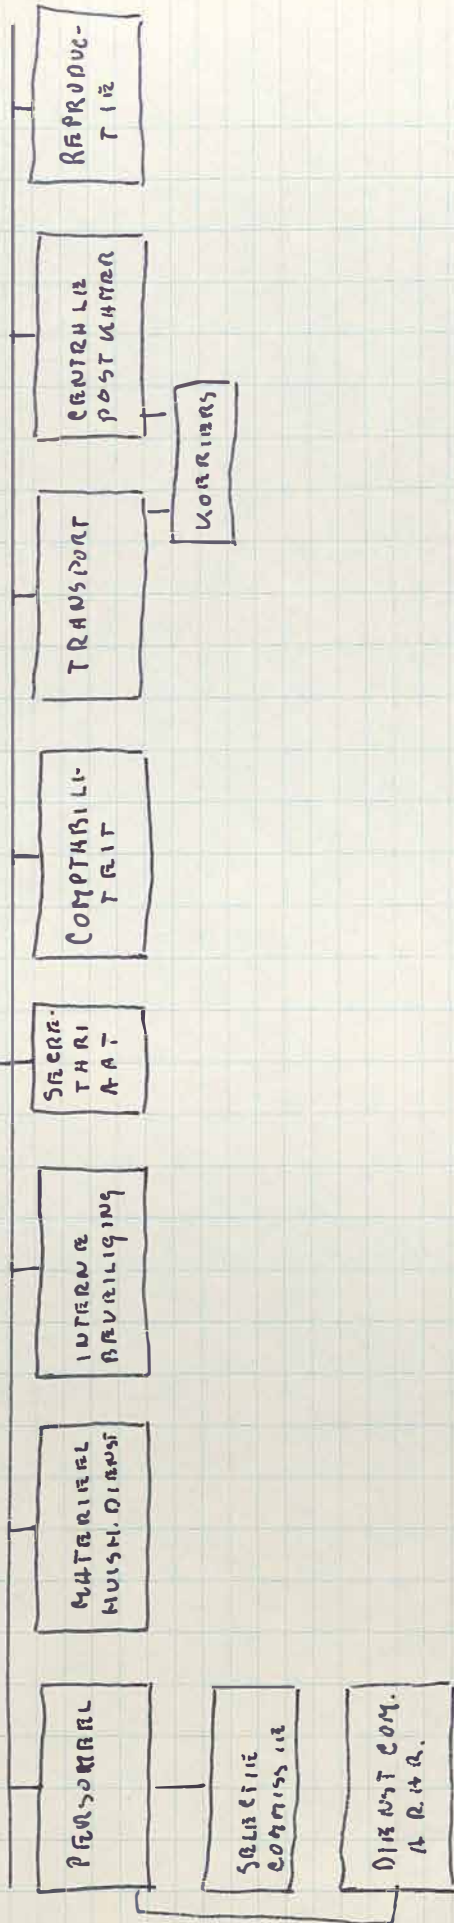 PERSONEEL
SELECTIE
COMMISSIE
DIENST COM.
A.R.A.R.
MATERIEEL
HUISH. DIENST
INTERNE
BEVEILIGING
SECRE-
TARI
AAT
COMPTABILI-
TEIT
TRANSPORT
KOERIERS
CENTRALE
POSTKAMER
REPRODUC-
TIE